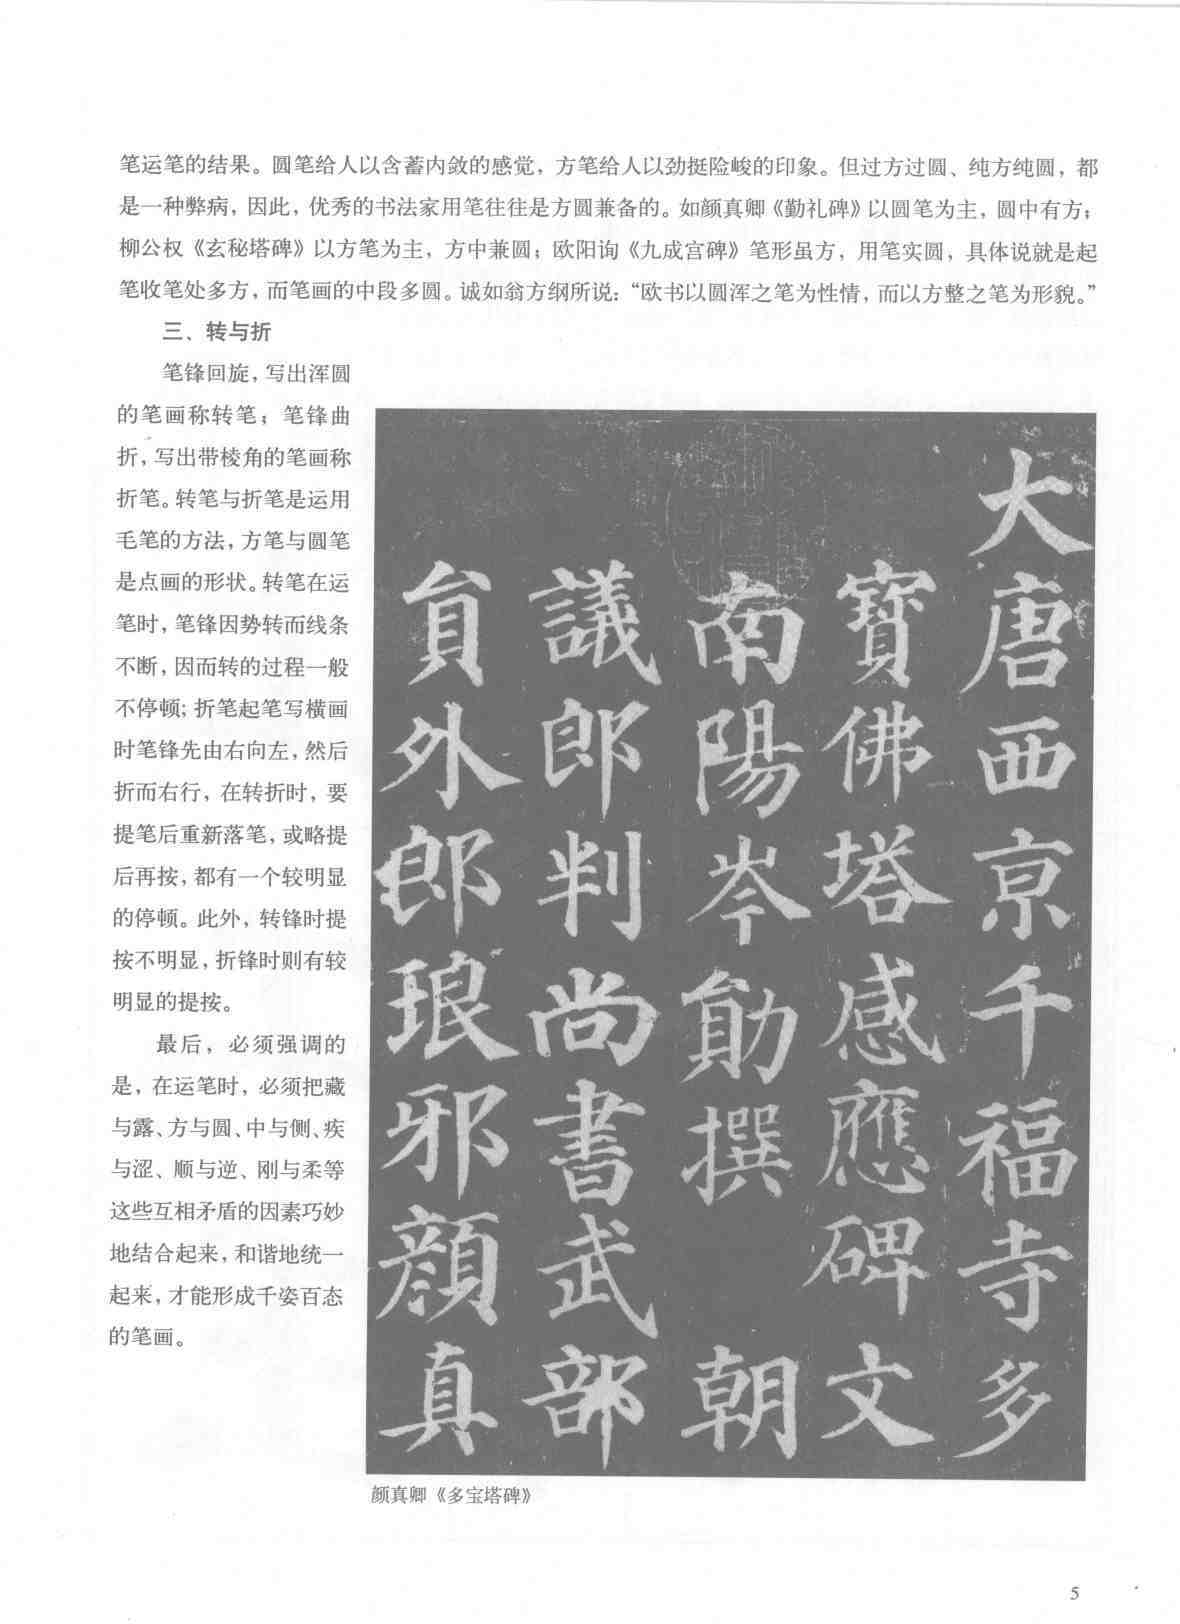 笔运笔的结果。圆笔给人以含蓄内敛的感觉，方笔给人以劲挺险峻的印象。但过方过圆、纯方纯圆，都
是一种弊病，因此，优秀的书法家用笔往往是方圆兼备的。如颜真卿《勤礼碑》以圆笔为主，圆中有方；
柳公权《玄秘塔碑》以方笔为主，方中兼圆；欧阳询《九成宫碑》笔形虽方，用笔实圆，具体说就是起
笔收笔处多方，而笔画的中段多圆。诚如翁方纲所说：“欧书以圆浑之笔为性情，而以方整之笔为形貌。”
三、转与折
笔锋回旋，写出浑圆
的笔画称转笔；笔锋曲
折，写出带棱角的笔画称
折笔。转笔与折笔是运用
毛笔的方法，方笔与圆笔
是点画的形状。转笔在运
笔时，笔锋因势转而线条
不断，因而转的过程一般
不停顿；折笔起笔写横画
时笔锋先由右向左，然后
折而右行，在转折时，要
提笔后重新落笔，或略提
后再按，都有一个较明显
的停顿。此外，转锋时提
按不明显，折锋时则有较
明显的提按。
最后，必须强调的
是，在运笔时，必须把藏
与露、方与圆、中与侧、疾
与涩、顺与逆、刚与柔等
这些互相矛盾的因素巧妙
地结合起来，和谐地统一
起来，才能形成千姿百态
的笔画。
大唐西京千福寺多
寶佛塔感應碑文
南陽岑勛撰 朝
議郎判尚書武部
員外郎琅邪顏真
颜真卿《多宝塔碑》
5